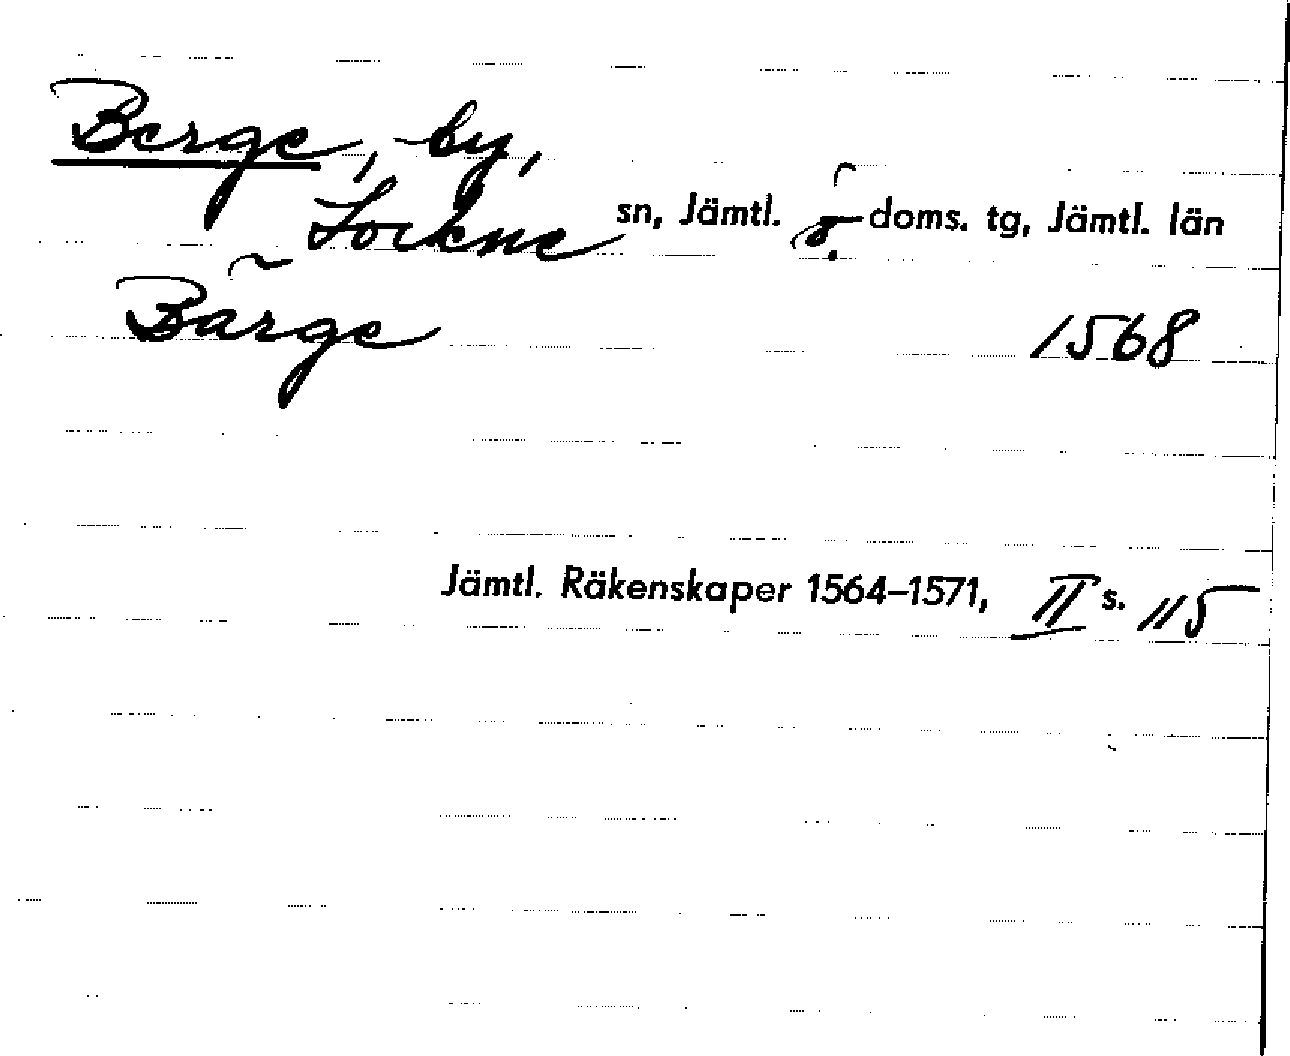 Berge, by,
Lockne sn, Jämtl. ö. doms. tg, Jämtl. län
Bärge 1568
Jämtl. Räkenskaper 1564–1571, II s. 115